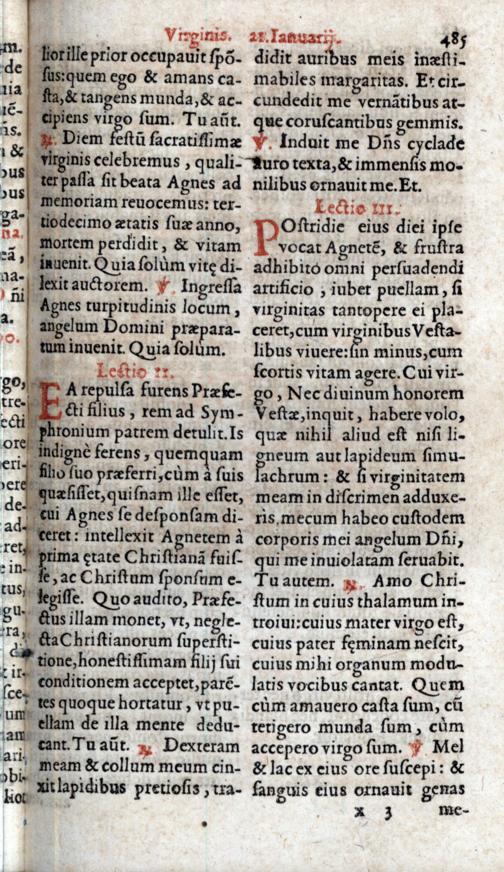 Virginis. 21. Ianuarij. 485
lior ille prior occupauit spõ-
sus: quem ego & amans ca-
sta, & tangens munda, & ac-
cipiens virgo sum. Tu aũt.
℟. Diem festũ sacratissimæ
virginis celebremus, quali-
ter passa sit beata Agnes ad
memoriam reuocemus: ter-
tiodecimo ætatis suæ anno,
mortem perdidit, & vitam
inuenit. Quia solùm vitę di-
lexit auctorem. ℣. Ingressa
Agnes turpitudinis locum,
angelum Domini præpara-
tum inuenit. Quia solum.
Lectio II.
EA repulsa furens Præfe-
cti filius, rem ad Sym-
phronium patrem detulit. Is
indignè ferens, quemquam
filio suo præferri, cùm à suis
quæsisset, quisnam ille esset,
cui Agnes se desponsam di-
ceret: intellexit Agnetem à
prima ętate Christianã fuis-
se, ac Christum sponsum e-
legisse. Quo audito, Præfe-
ctus illam monet, vt, negle-
cta Christianorum supersti-
tione, honestissimam filij sui
conditionem acceptet, parẽ-
tes quoque hortatur, vt pu-
ellam de illa mente dedu-
cant. Tu aũt. ℟. Dexteram
meam & collum meum cin-
xit lapidibus pretiosis, tra-
didit auribus meis inæsti-
mabiles margaritas. Et cir-
cundedit me vernãtibus at-
que coruscantibus gemmis.
℣. Induit me Dñs cyclade
auro texta, & immensis mo-
nilibus ornauit me. Et.
Lectio III.
POstridie eius diei ipse
vocat Agnetẽ, & frustra
adhibito omni persuadendi
artificio, iubet puellam, si
virginitas tantopere ei pla-
ceret, cum virginibus Vesta-
libus viuere: sin minus, cum
scortis vitam agere. Cui vir-
go, Nec diuinum honorem
Vestæ, inquit, habere volo,
quæ nihil aliud est nisi li-
gneum aut lapideum simu-
lachrum: & si virginitatem
meam in discrimen adduxe-
ris, mecum habeo custodem
corporis mei angelum Dñi,
qui me inuiolatam seruabit.
Tu autem. ℟. Amo Chri-
stum in cuius thalamum in-
troiui: cuius mater virgo est,
cuius pater fęminam nescit,
cuius mihi organum modu-
latis vocibus cantat. Quem
cùm amauero casta sum, cũ
tetigero munda sum, cùm
accepero virgo sum. ℣. Mel
& lac ex eius ore suscepi: &
sanguis eius ornauit genas
x 3 me-